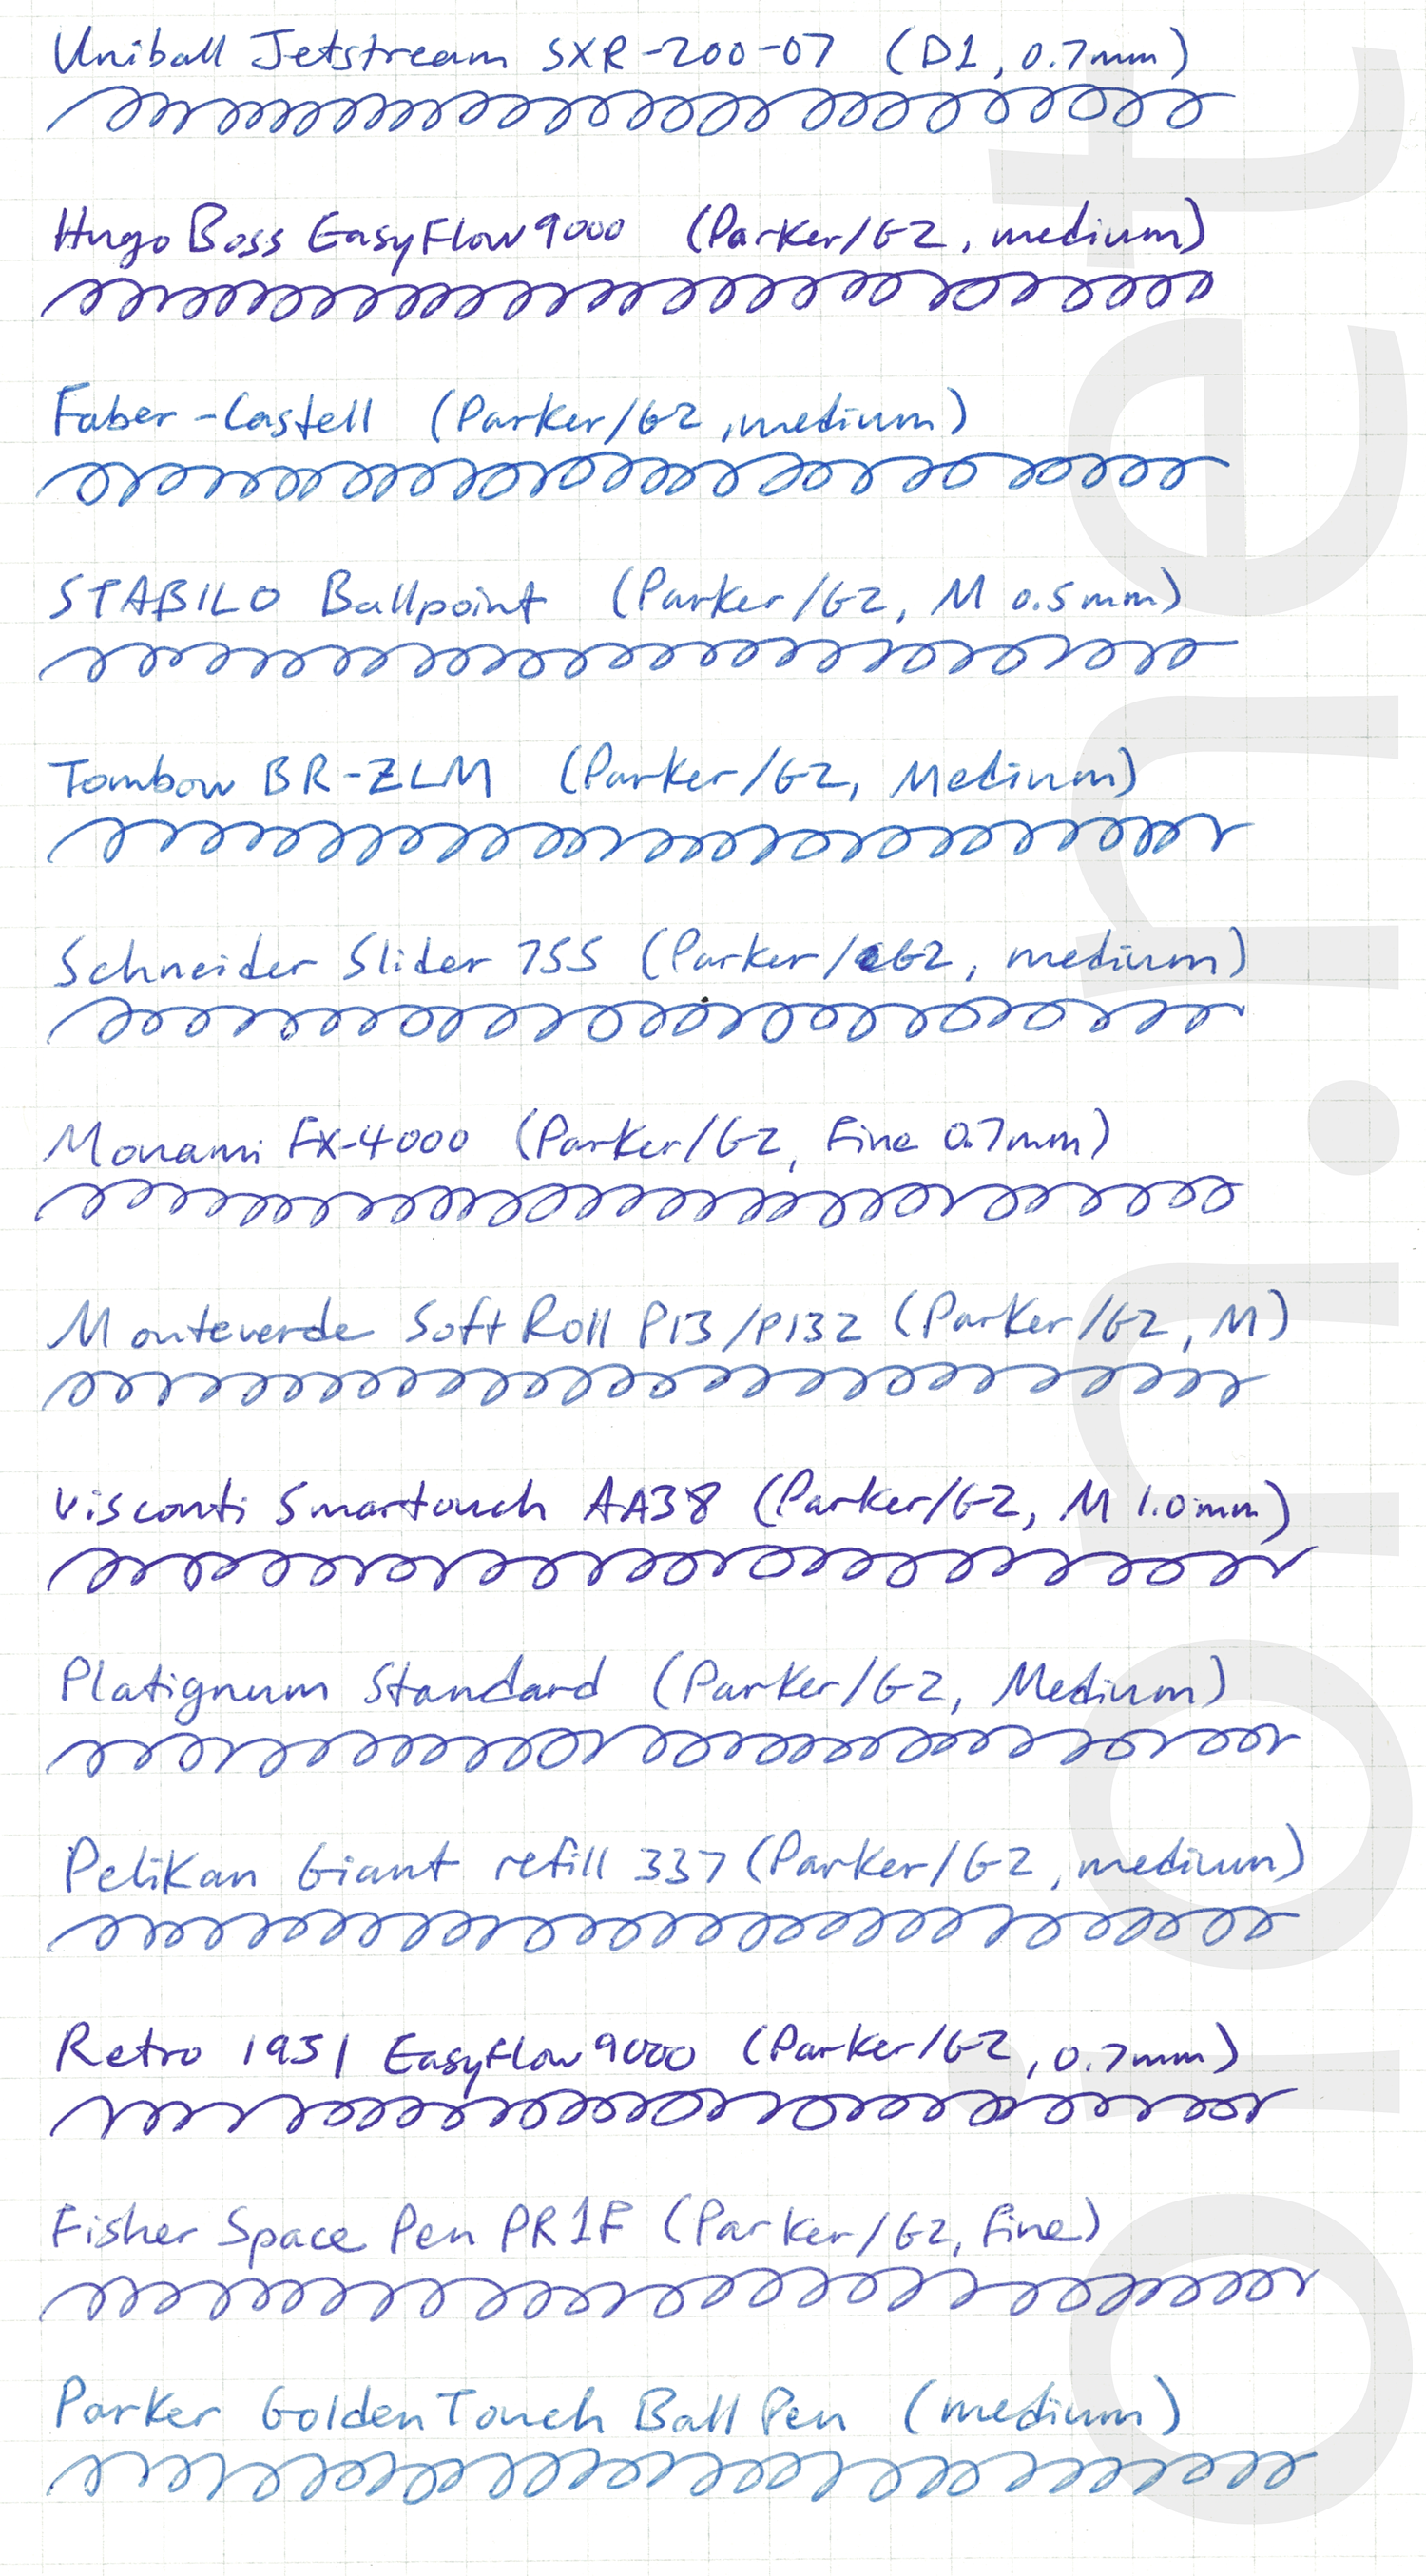 Uniball Jetstream SXR-200-07 (D1, 0.7mm)
Hugo Boss EasyFlow9000 (Parker/G2, medium)
Faber-Castell (Parker/G2, medium)
STABILO Ballpoint (Parker/G2, M 0.5mm)
Tombow BR-ZLM (Parker/G2, Medium)
Schneider Slider 755 (Parker/G2, medium)
Monami FX-4000 (Parker/G2, Fine 0.7mm)
Monteverde Soft Roll P13/P132 (Parker/G2, M)
Visconti Smartouch AA38 (Parker/G2, M 1.0mm)
Platignum Standard (Parker/G2, Medium)
Pelikan Giant refill 337 (Parker/G2, medium)
Retro 1951 Easyflow9000 (Parker/G2, 0.7mm)
Fisher Space Pen PR1F (Parker/G2, Fine)
Parker Golden Touch Ball Pen (medium)